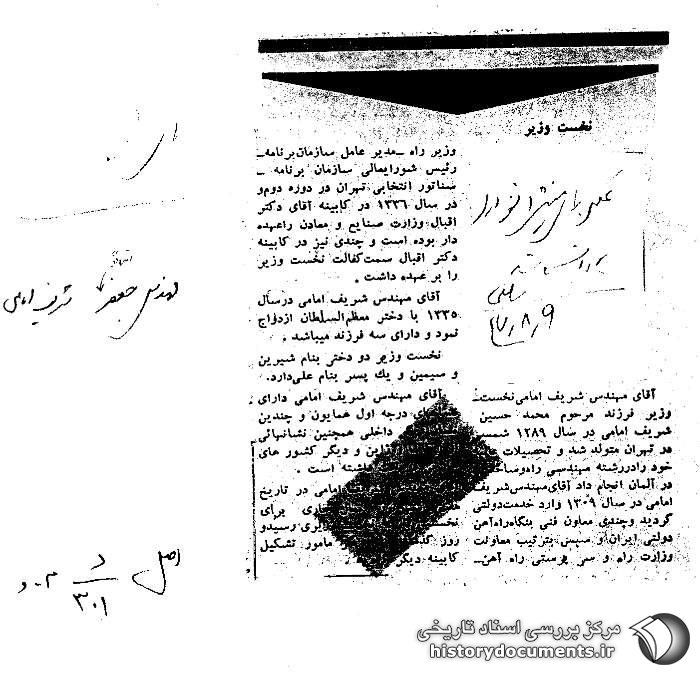 نخست وزیر
آقای مهندس شریف امامی نخست‌ـ
وزیر فرزند مرحوم محمد حسین
شریف امامی در سال ۱۲۸۹ شمسی
در تهران متولد شد و تحصیلات
خود رادررشته مهندسی راه‌وسا
در آلمان انجام داد آقای‌مهندس‌شریف
امامی در سال ۱۳۰۹ وارد خدمت‌دولتی
گردید وچندی معاون فنی بنگاه‌راه‌آهن
دولتی ایران و سپس بترتیب معاونت
وزارت راه و سر پرستی راه آهن‌ـ
وزیر راه ـ‌مدیر عامل سازمان‌برنامه‌ـ
رئیس شورایعالی سازمان برنامه ـ
سناتور انتخابی تهران در دوره دوم‌و
در سال ۱۳۳۶ در کابینه آقای دکتر
اقبال وزارت صنایع و معادن راعهده
دار بوده است و چندی نیز در کابینه
دکتر اقبال سمت‌کفالت نخست وزیر
را بر عهده داشت .
آقای مهندس شریف امامی درسال
۱۳۳۵ با دختر معظم‌السلطان ازدواج
نمود و دارای سه فرزند میباشد .
نخست وزیر دو دختر بنام شیرین
و سیمین و یك پسر بنام علی‌دارد.
آقای مهندس شریف امامی دارای
درجه اول همایون و چندین
داخلی همچنین نشانهائی
ژاپن و دیگر کشور های
داشته است .
امامی در تاریخ
برای
نخست
روز مامور تشکیل
کابینه دیگر
مهندس جعفر شریف امامی
۳۷٫۸٫۹
اصل
۳۰۱
مرکز بررسی اسناد تاریخی
historydocuments.ir